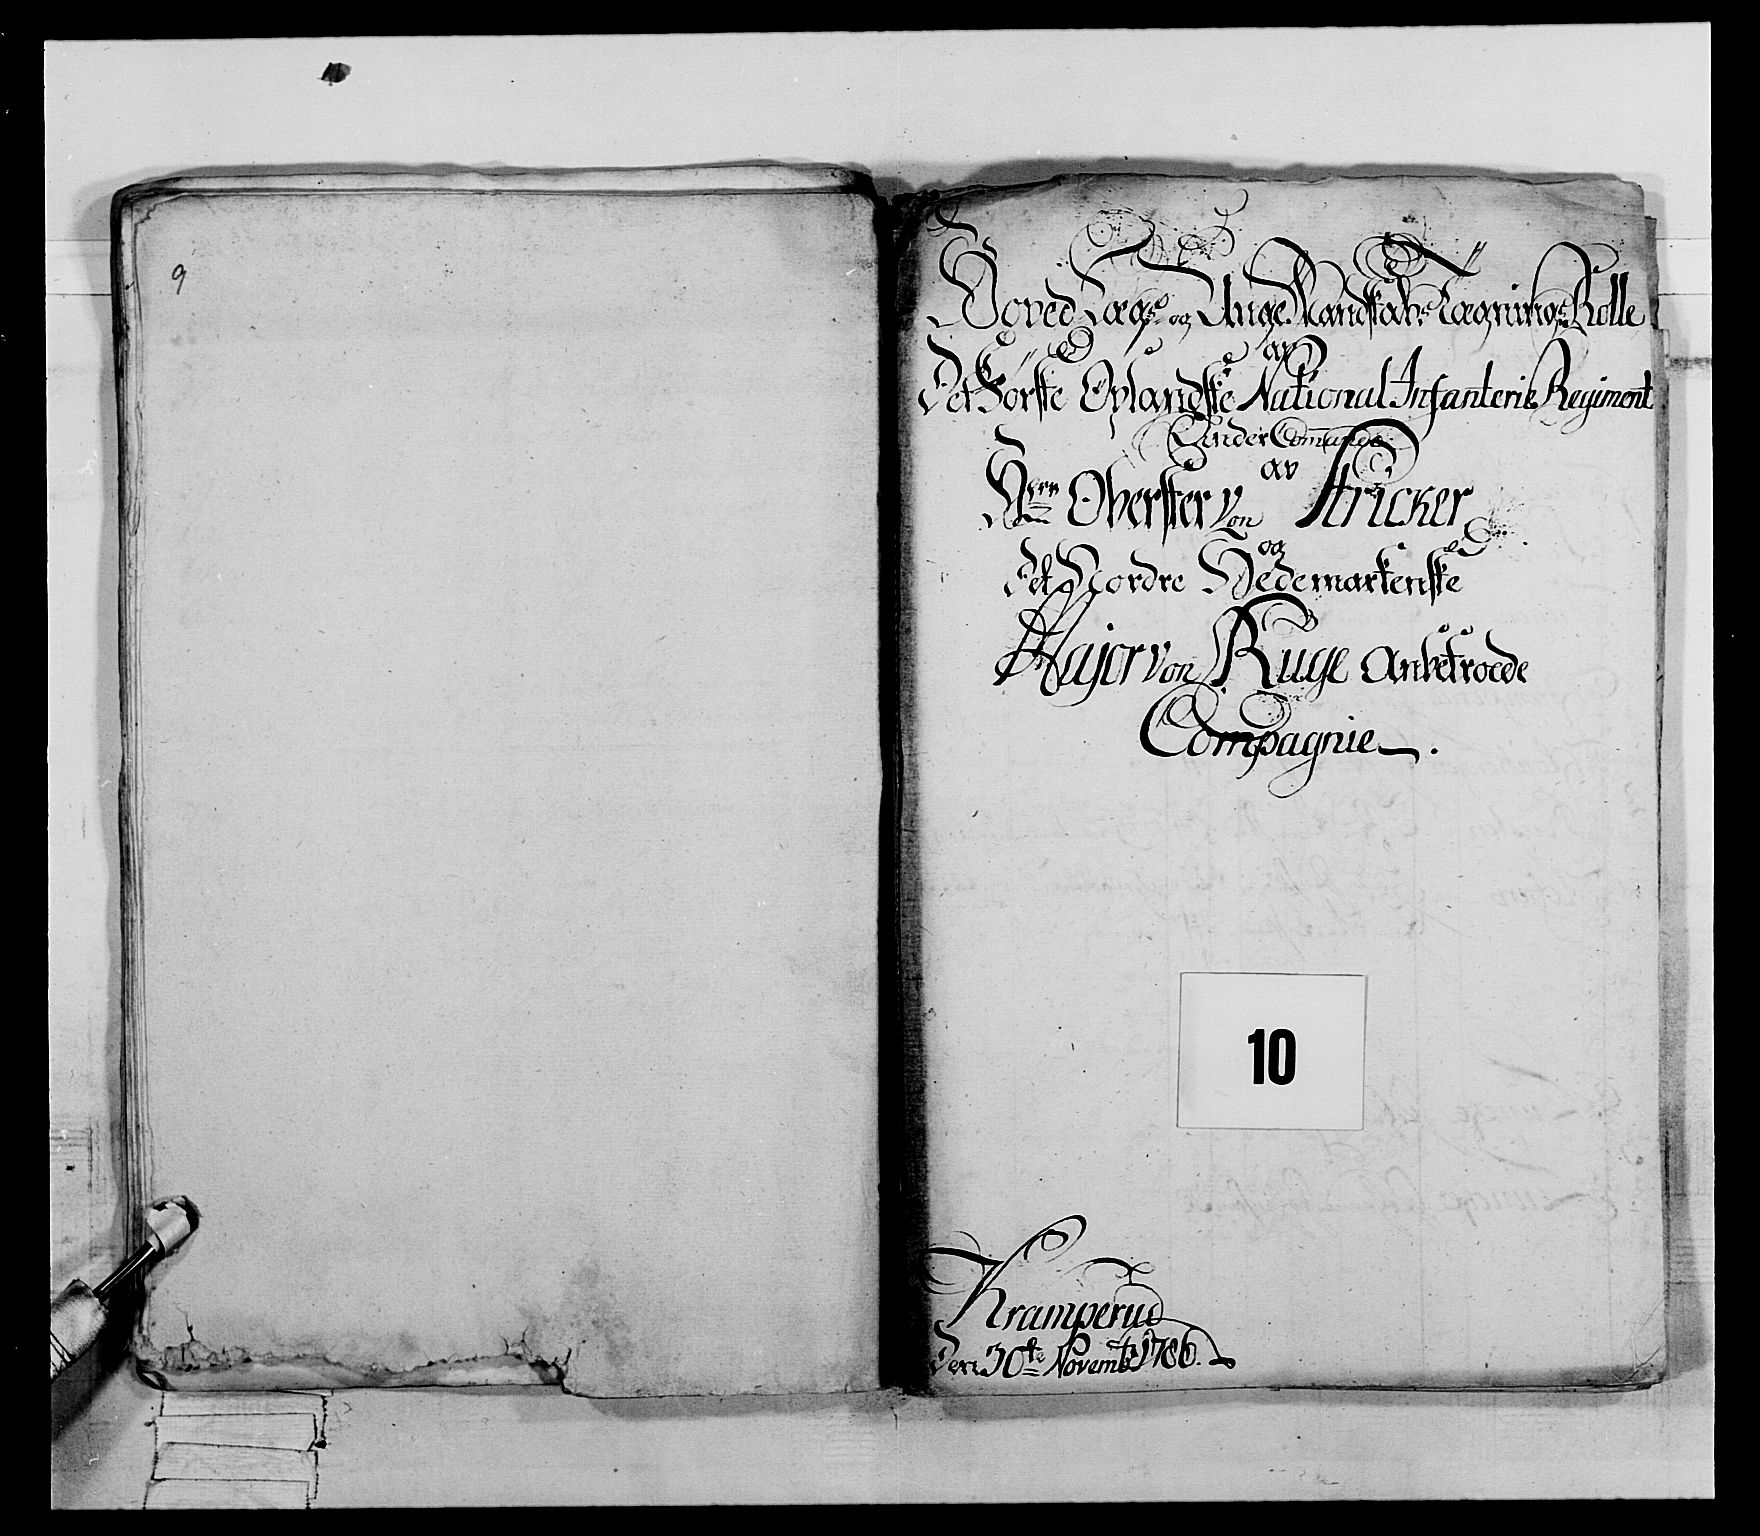 9
Hoved Lægs og Unge Mandskabs Lægnings Rolle
av
Det Førske Oplandske National Infanterie Regiment
Under Comando
av
Herr Oberster Von Stricker
og
Det Nordre Hedemarkenske
Major von Ruge Anbetroede
Compagnie.
10
Kramperud
Den 30te Novembr 1786.